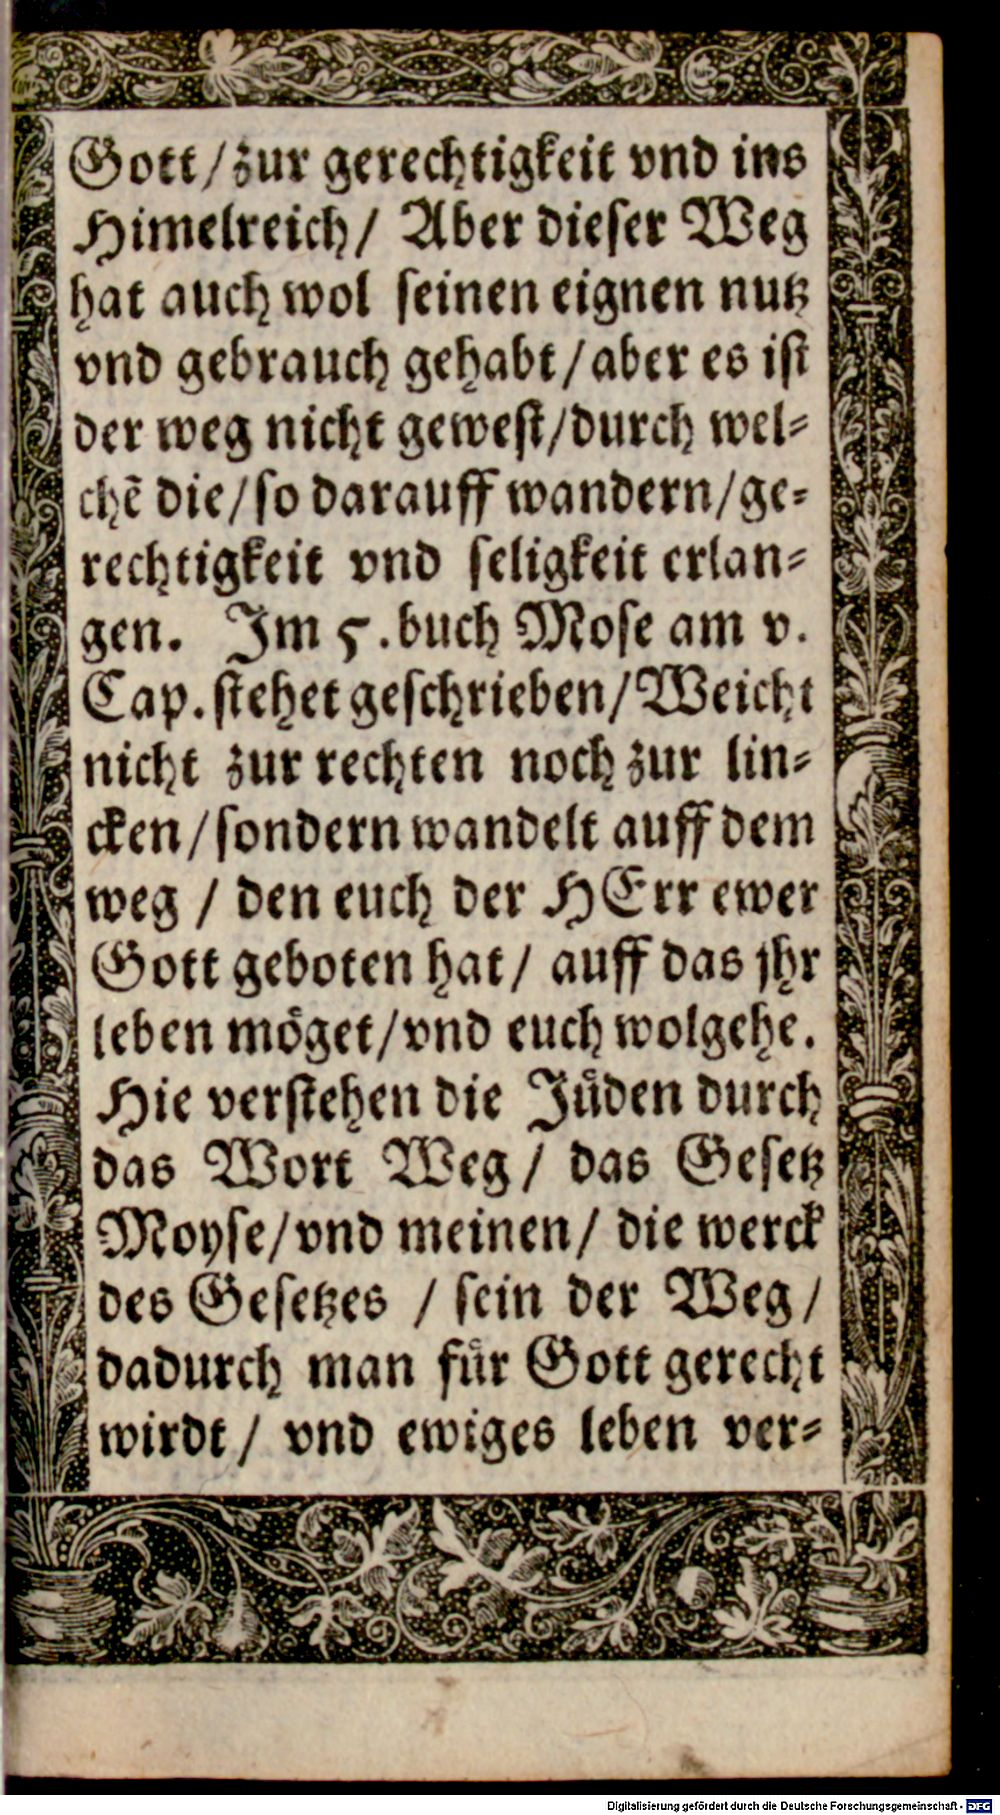 Gott/zur gerechtigkeit vnd ins
Himelreich/ Aber dieser Weg
hat auch wol seinen eignen nutz
vnd gebrauch gehabt/aber es ist
der weg nicht gewest/durch wel-
chẽ die/so darauff wandern/ge-
rechtigkeit vnd seligkeit erlan-
gen. Im 5.buch Mose am v.
Cap.stehet geschrieben/Weicht
nicht zur rechten noch zur lin-
cken/sondern wandelt auff dem
weg / den euch der HErr ewer
Gott geboten hat/ auff das jhr
leben möget/vnd euch wolgehe.
Hie verstehen die Jüden durch
das Wort Weg/ das Gesetz
Moyse/vnd meinen/ die werck
des Gesetzes / sein der Weg/
dadurch man für Gott gerecht
wirdt/ vnd ewiges leben ver-
Digitalisierung gefördert durch die Deutsche Forschungsgemeinschaft - DFG